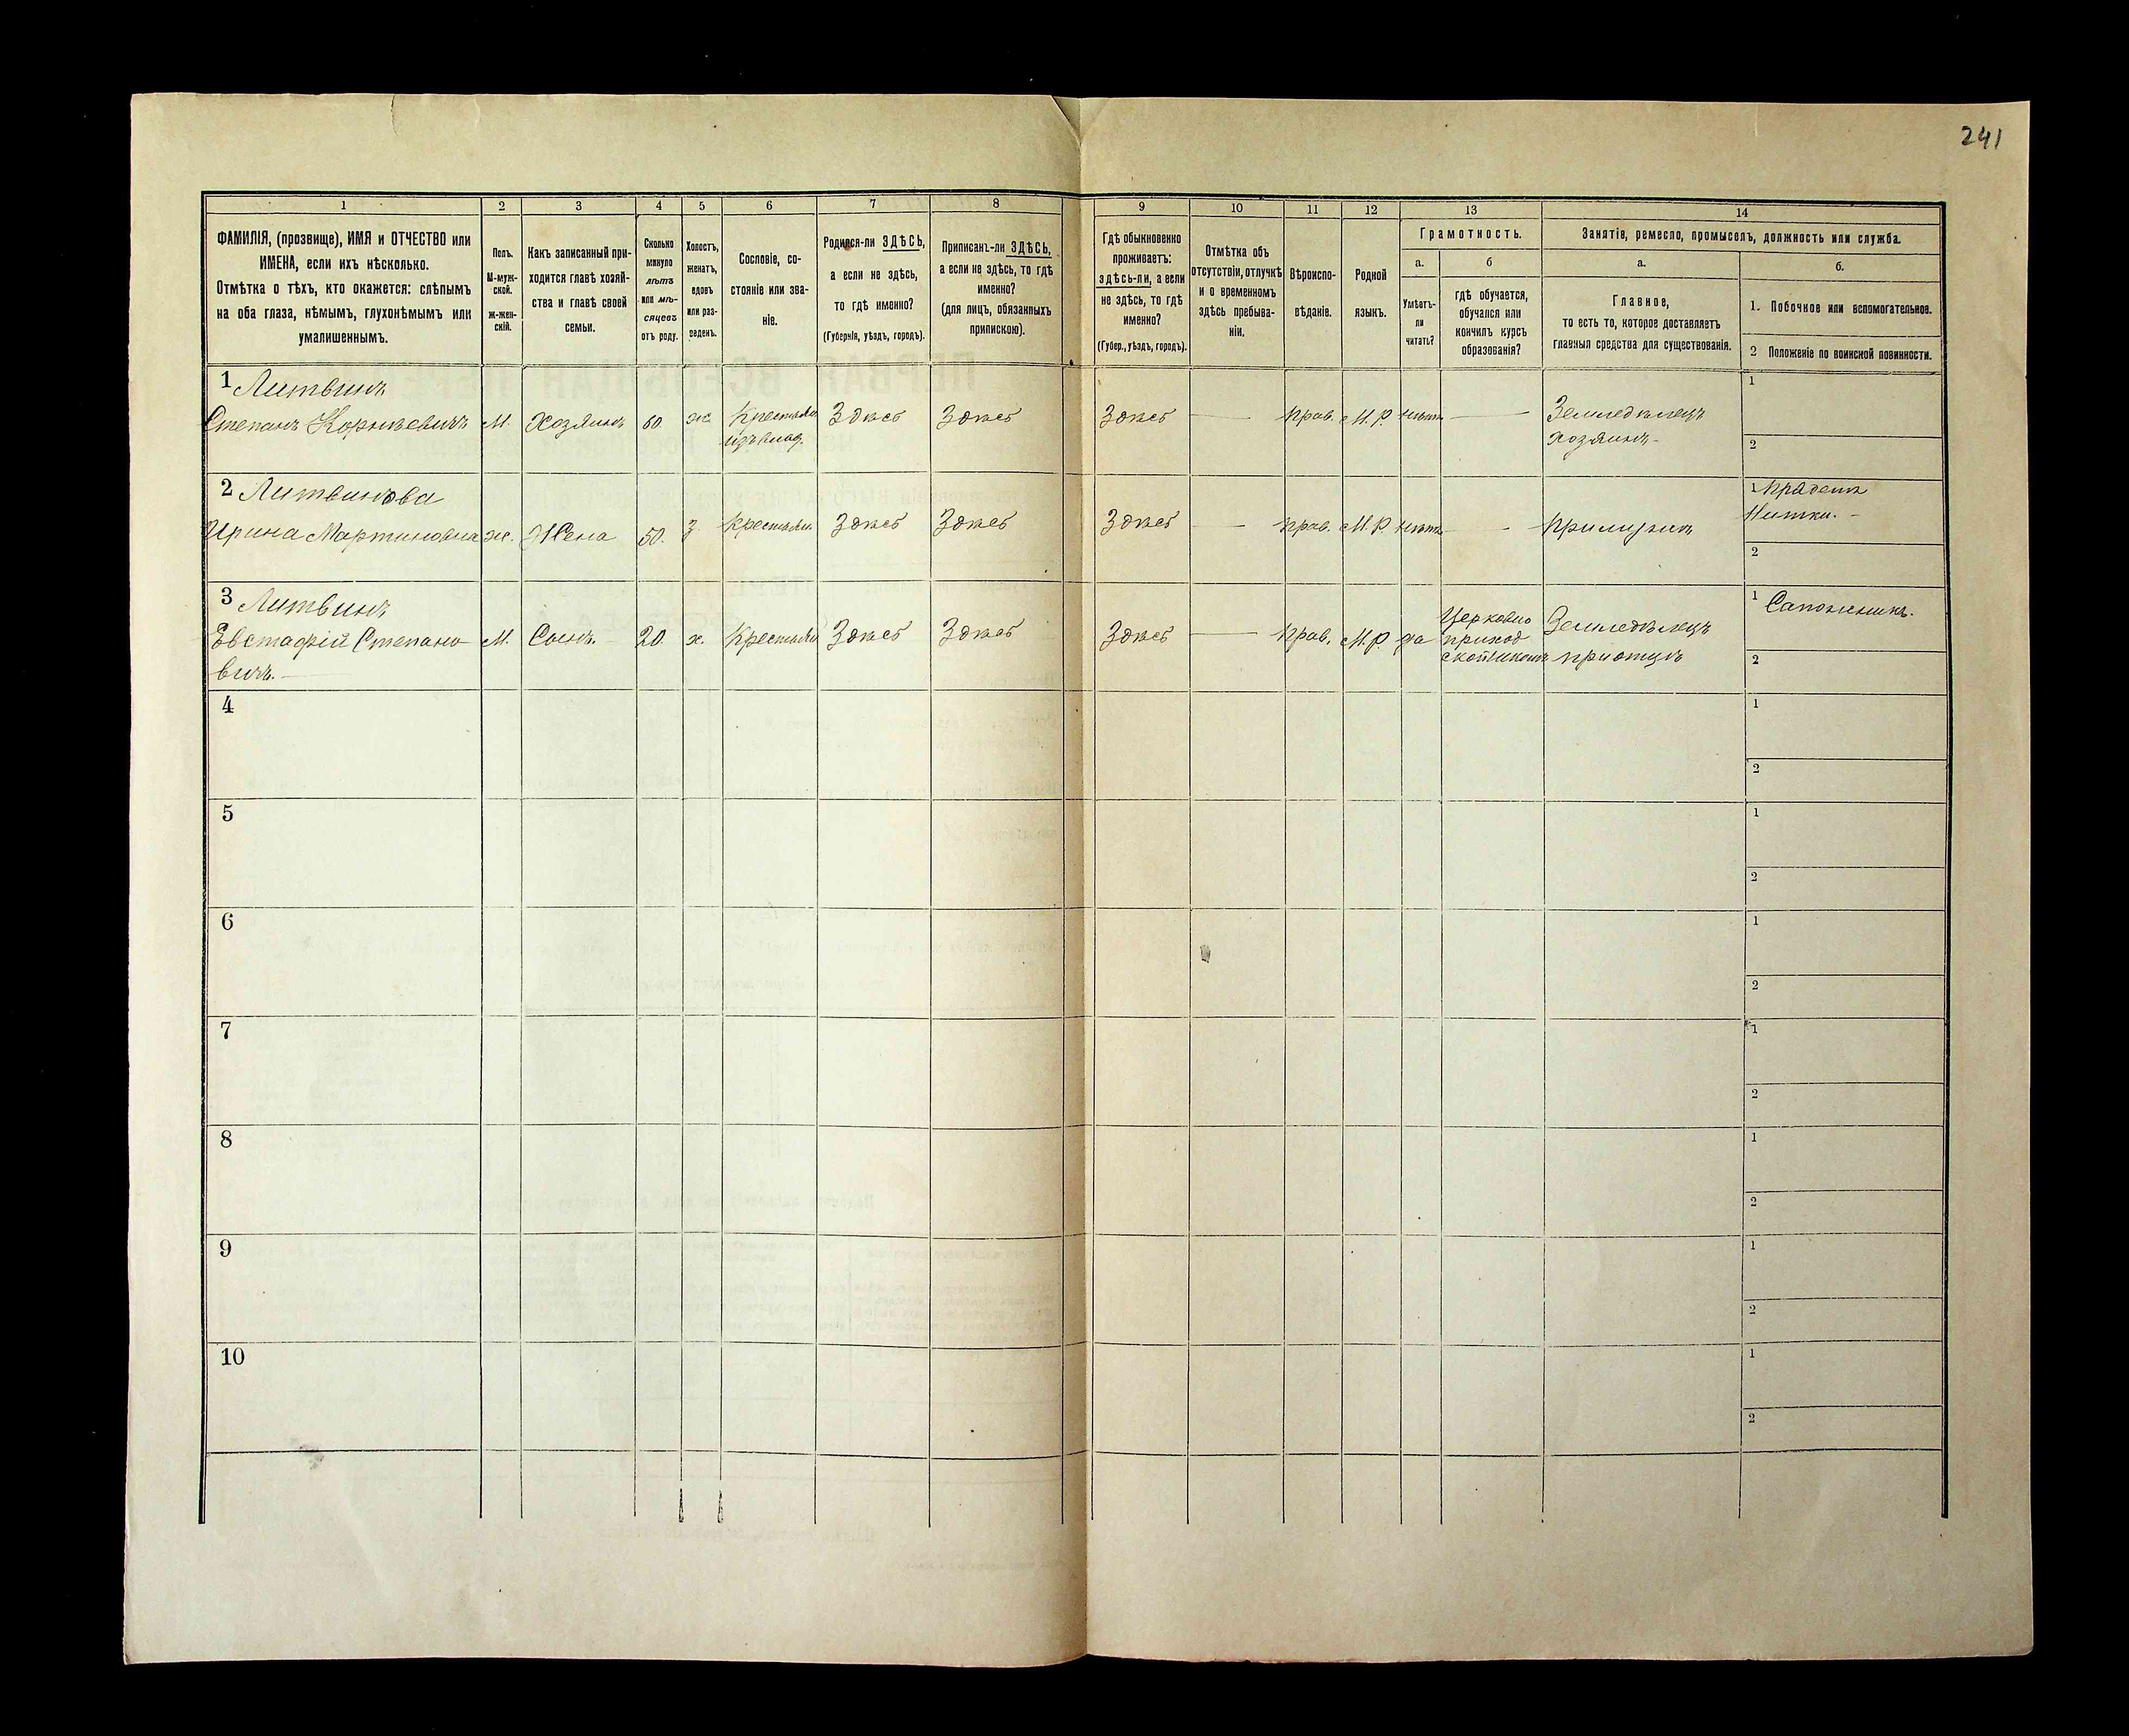 241
1 2 3 4 5 6 7 8 9 10 11 12 13 14
ФАМИЛІЯ, (прозвище), ИМЯ и ОТЧЕСТВО или
ИМЕНА, если ихъ нѣсколько.
Отмѣтка о тѣхъ, кто окажется: слѣпымъ
на оба глаза, нѣмымъ, глухонѣмымъ или
умалишеннымъ.
Полъ.
М-муж-
ской.
ж-жен-
скій.
Какъ записанный при-
ходится главѣ хозяй-
ства и главѣ своей
семьи.
Сколько
минуло
лѣтъ
или мѣ-
сяцевъ
отъ роду.
Холостъ,
женатъ,
вдовъ
или раз-
веденъ.
Сословіе, со-
стояніе или зва-
ніе.
Родился-ли ЗДѢСЬ,
а если не здѣсь,
то гдѣ именно?
(Губернія, уѣздъ, городъ).
Приписанъ-ли ЗДѢСЬ,
а если не здѣсь, то гдѣ
именно?
(для лицъ, обязанныхъ
припискою).
Гдѣ обыкновенно
проживаетъ:
здѣсь-ли, а если
не здѣсь, то гдѣ
именно?
(Губер., уѣздъ, городъ).
Отмѣтка объ
отсутствіи, отлучкѣ
и о временномъ
здѣсь пребыва-
ніи.
Вѣроиспо-
вѣданіе.
Родной
языкъ.
Грамотность.
а.
Умѣетъ-
ли
читать?
б
гдѣ обучается,
обучался или
кончилъ курсъ
образованія?
Занятіе, ремесло, промыселъ, должность или служба.
а.
Главное,
то есть то, которое доставляетъ
главныя средства для существованія.
б.
1. Побочное или вспомогательное.
2 Положеніе по воинской повинности.
1 Литвинъ
Степанъ Корнѣевичъ М. Хозяинъ 60 ж. Крестьян. Здѣсь Здѣсь Здѣсь — Прав. М.Р. нѣтъ — Земледѣлецъ
изъ влад. хозяинъ-
1
2
2 Литвинова
Ирина Мартиновна ж. Жена 50. з. Крестьян. Здѣсь Здѣсь Здѣсь — прав. М.Р. нѣтъ — При мужѣ
1 Прядетъ
Нитки. -
2
3 Литвинъ
Евстафій Степано- М. Сынъ. 20 х. Крестьян Здѣсь Здѣсь Здѣсь — Прав. М.Р. да Церковно Земледѣлецъ
вичъ. приход при отцѣ
1 Сапожникъ.
2
4
1
2
5
1
2
6
1
2
7
1
2
8
1
2
9
1
2
10
1
2